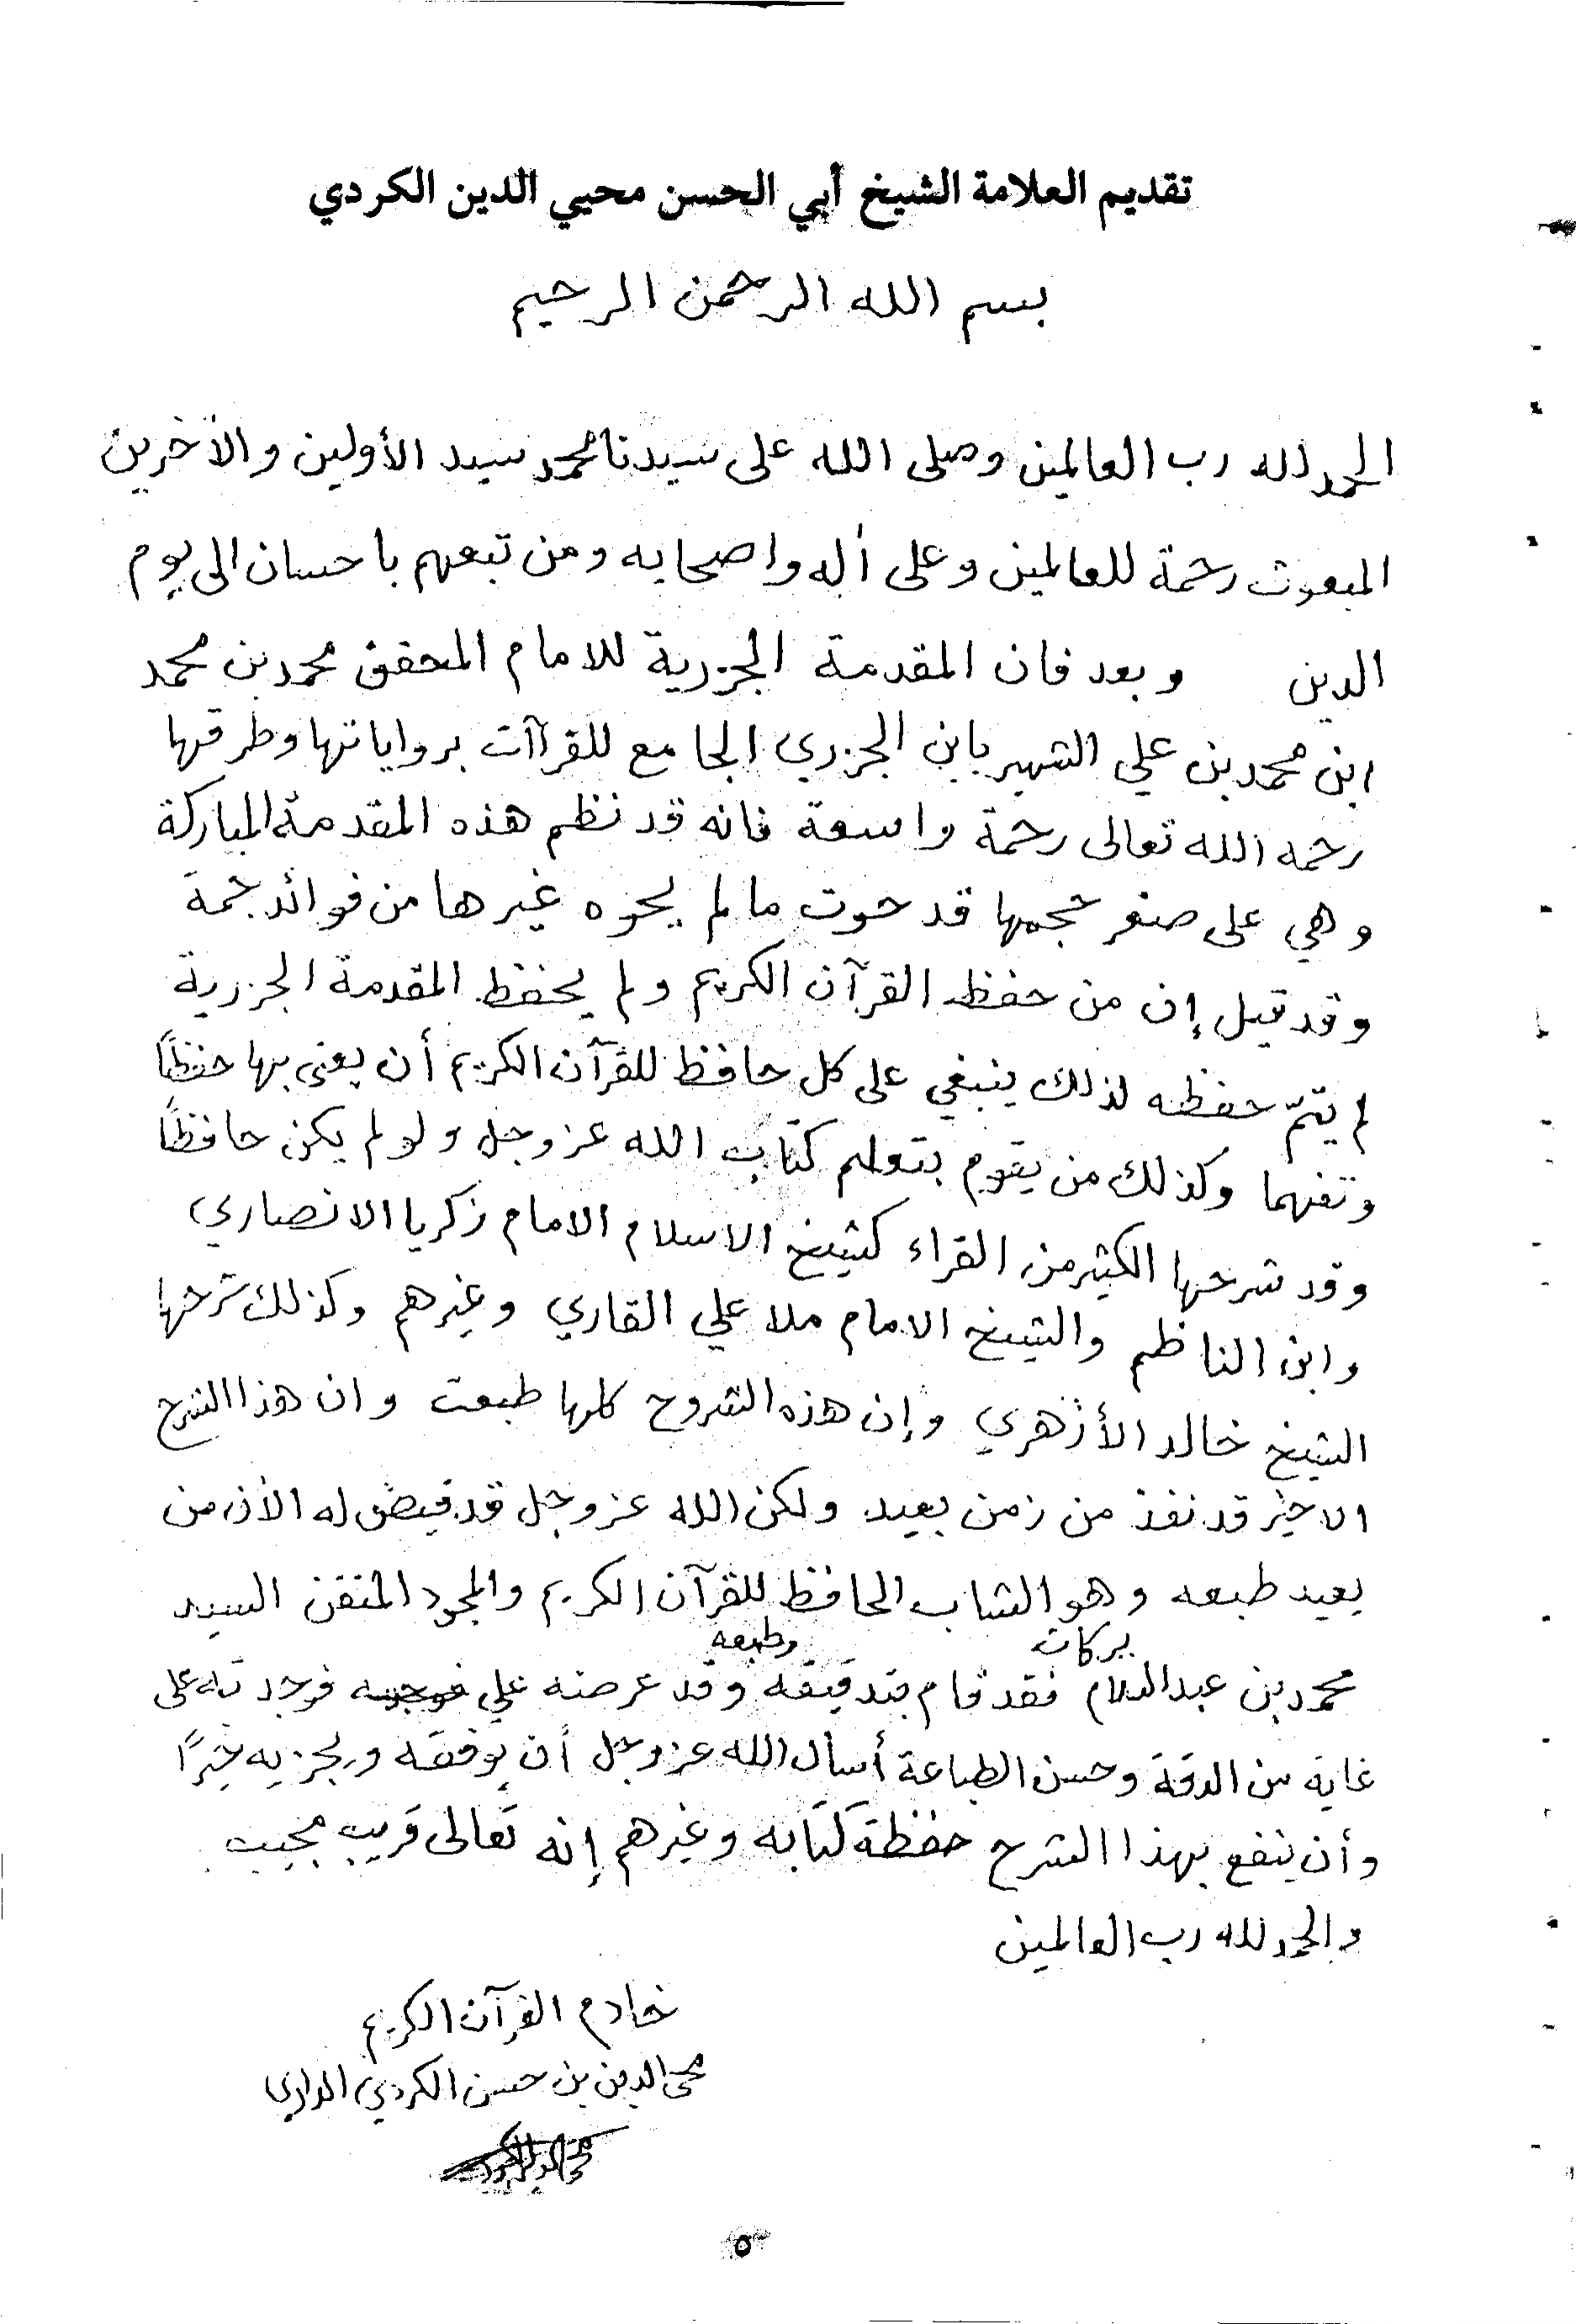 تقديم العلامة الشيخ أبي الحسن محيي الدين الكردي
بسم الله الرحمن الرحيم
الحمد لله رب العالمين وصلى الله على سيدنا محمد سيد الأولين والآخرين
المبعوث رحمة للعالمين وعلى آله واصحابه ومن تبعهم باحسان الى يوم
الدين وبعد فان المقدمة الجزرية للامام المحقق محمد بن محمد
ابن محمد بن علي الشهير بابن الجزري الجامع للقرآت برواياتها وطرقها
رحمه الله تعالى رحمة واسعة فانه قد نظم هذه المقدمة المباركة
وهي على صغر حجمها قد حوت ما لم يحوه غيرها من فوائد جمة
وقد قيل إن من حفظ القرآن الكريم ولم يحفظ المقدمة الجزرية
لم يتمّ حفظه لذلك ينبغي على كل حافظ للقرآن الكريم أن يعنى بها حفظاً
وتفهما وكذلك من يقوم بتعلم كتاب الله عز وجل ولو لم يكن حافظاً
وقد شرحها الكثير من القراء كشيخ الاسلام الامام زكريا الانصاري
وابن الناظم والشيخ الامام ملا علي القاري وغيرهم وكذلك شرحها
الشيخ خالد الأزهري وإن هذه الشروح كلها طبعت وان هذا الشرح
الاخير قد نفذ من زمن بعيد ولكن الله عز وجل قد قيض له الآن من
يعيد طبعه وهو الشاب الحافظ للقرآن الكريم والمجود المتقن السيد
بركات وطبعه
محمد بن عبد السلام فقد قام بتدقيقه وقد عرضه علي فوجدته على
غاية من الدقة وحسن الطباعة أسأل الله عز وجل أن يوفقه ويجزيه خيراً
وأن ينفع بهذا الشرح حفظة كتابه وغيرهم إنه تعالى قريب مجيب
والحمد لله رب العالمين
خادم القرآن الكريم
محي الدين بن حسن الكردي الداري
٥